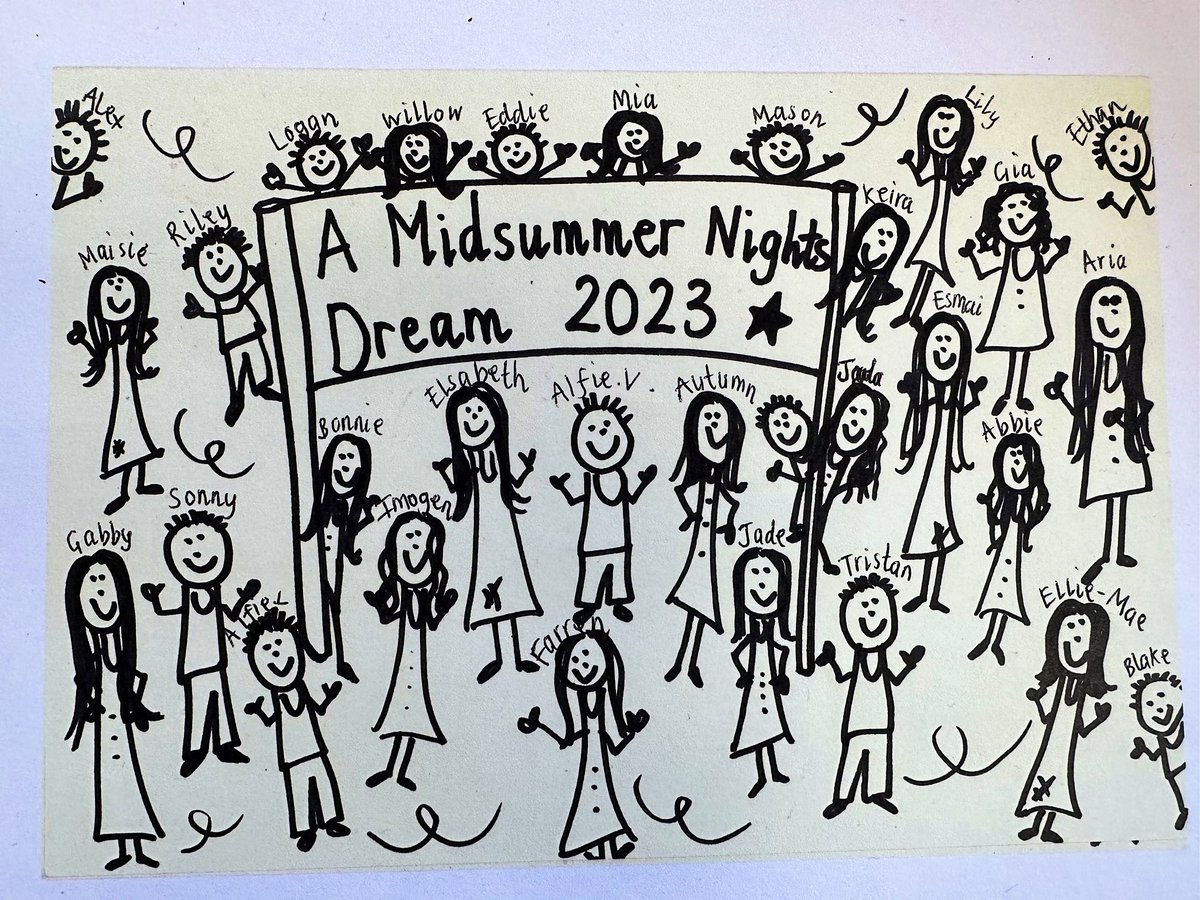 Alex
Logan
Willow
Eddie
Mia
Mason
Lily
Ethan
Gia
Keira
Riley
Maisie
A Midsummer Nights
Dream 2023
Aria
Esmai
Elsabeth
Alfie.V.
Autumn
Bonnie
Abbie
Imogen
Sonny
Gabby
Jade
Tristan
Ellie-Mae
Farren
Blake